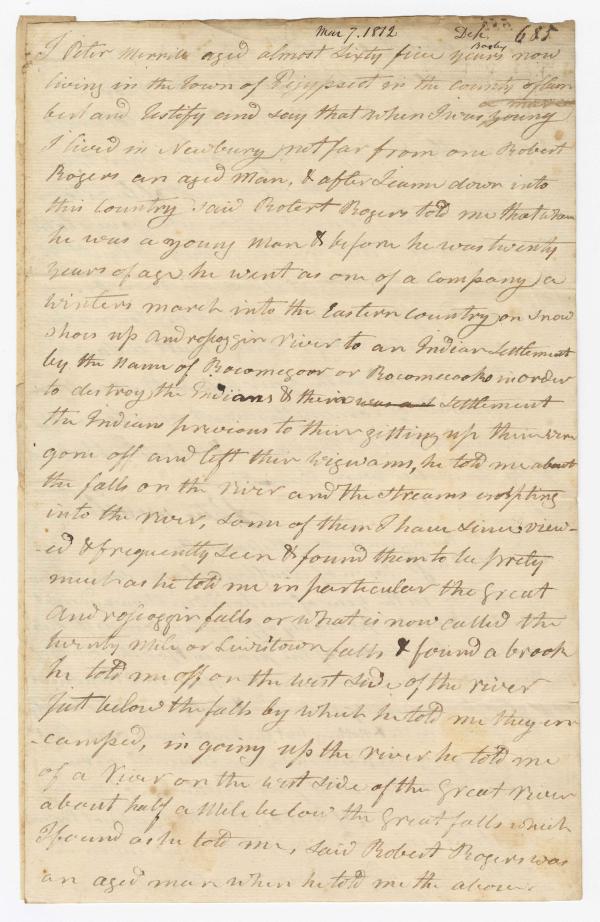 Mar 7. 1812 Dep. 685
I Peter Merrill aged almost Sixty five years now
living in the town of Pejypscot in the county of Cum
berland Testify and say that when I was young
I lived in Newbury not far from one Robert
Rogers an aged man, & after I came down into
this Country said Robert Rogers told me that when
he was a young man & before he was twenty
years of age he went as one of a company a
winters march into the Eastern Country on snow
shoes up Androscoggin river to an Indian Settlement
by the Name of Rocomegoor or Rocomecooks in order
to destroy the Indians & their was at Settlement
the Indians previous to their gitting up their were
gone off and left their wigwams, he told me about
the falls on the river and the streams emptying
into the river, some of them I have since view-
-ed & frequently seen & found them to be prety
much as he told me in particular the Great
Androscoggin falls or what is now called the
twenty Mile or Lewistown falls & found a brook
he told me off on the west side of the river
just below the falls by which he told me they en-
-camped, in going up the river he told me
of a river on the west side of the Great river
about half a Mile below the Great falls which
I found as he told me, said Robert Rogers was
an aged man when he told me the above.